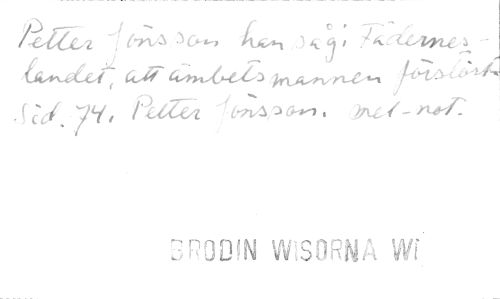 Petter Jönsson han såg i Fädernes-
landet, att ämbetsmannen förstört
Sid. 74. Petter Jönsson. mel-not.
BRODIN WISORNA WI